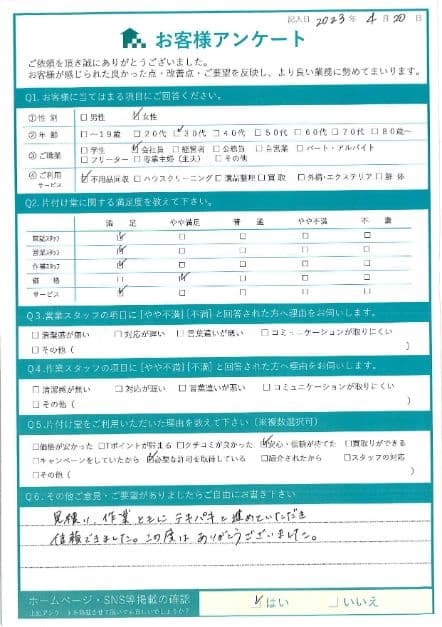 記入日 2023年 4月 20日
お客様アンケート
ご依頼を頂き誠にありがとうございました。
お客様が感じられた良かった点・改善点・ご要望を反映し、より良い業務に努めてまいります。
Q1. お客様に当てはまる項目にご回答ください。
①性 別 □男性 ☑女性
②年 齢 □〜19歳 □20代 ☑30代 □40代 □50代 □60代 □70代 □80歳〜
③ご職業 □学生 ☑会社員 □経営者 □公務員 □自営業 □パート・アルバイト
□フリーター □専業主婦（主夫） □その他
④ご利用サービス ☑不用品回収 □ハウスクリーニング □遺品整理 □買取 □外構・エクステリア □解体
Q2. 片付け堂に関する満足度を教えて下さい。
満 足 やや満足 普 通 やや不満 不 満
電話スタッフ ☑ □ □ □ □
営業スタッフ ☑ □ □ □ □
作業スタッフ ☑ □ □ □ □
価 格 □ ☑ □ □ □
サービス ☑ □ □ □ □
Q3. 営業スタッフの項目に［やや不満］［不満］と回答された方へ理由をお伺いします。
□清潔感が無い □対応が遅い □言葉遣いが悪い □コミュニケーションが取りにくい
□その他（ ）
Q4. 作業スタッフの項目に［やや不満］［不満］と回答された方へ理由をお伺いします。
□清潔感が無い □対応が遅い □言葉遣いが悪い □コミュニケーションが取りにくい
□その他（ ）
Q5. 片付け堂をご利用いただいた理由を教えて下さい（※複数選択可）
□価格が安かった □Tポイントが貯まる □クチコミが良かった ☑安心・信頼が持てた □買取りができる
□キャンペーンをしていたから ☑必要な許可を取得している □紹介されたから □スタッフの対応
□その他（ ）
Q6. その他ご意見・ご要望がありましたらご自由にお書き下さい
見積り、作業ともにテキパキと進めていただき
信頼できました。この度はありがとうございました。
ホームページ・SNS等掲載の確認
上記アンケートを掲載させて頂いても宜しいでしょうか？
☑はい □いいえ